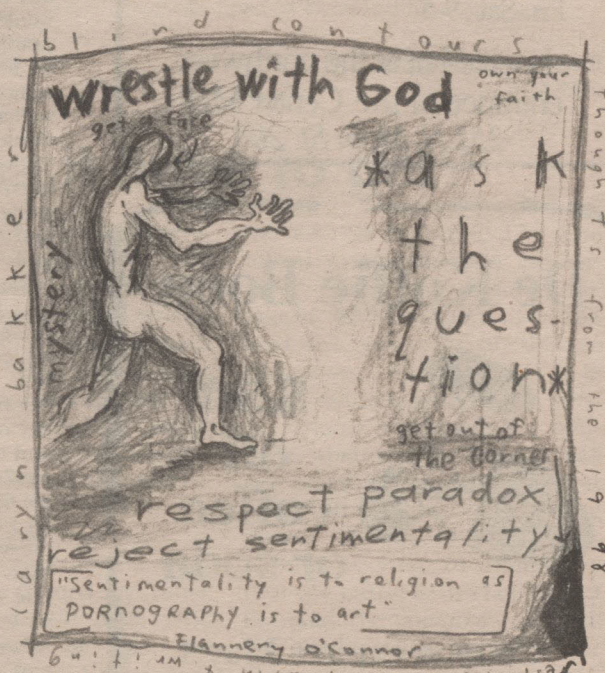 blind contours
wrestle with God
own your
faith
get a face
*ask
the
ques-
tion*
mystery
get out of
the corner
respect paradox
reject sentimentality
"Sentimentality is to religion as
PORNOGRAPHY is to art"
Flannery O'Connor
caryn bakkes
thoughts from the 1998
writing